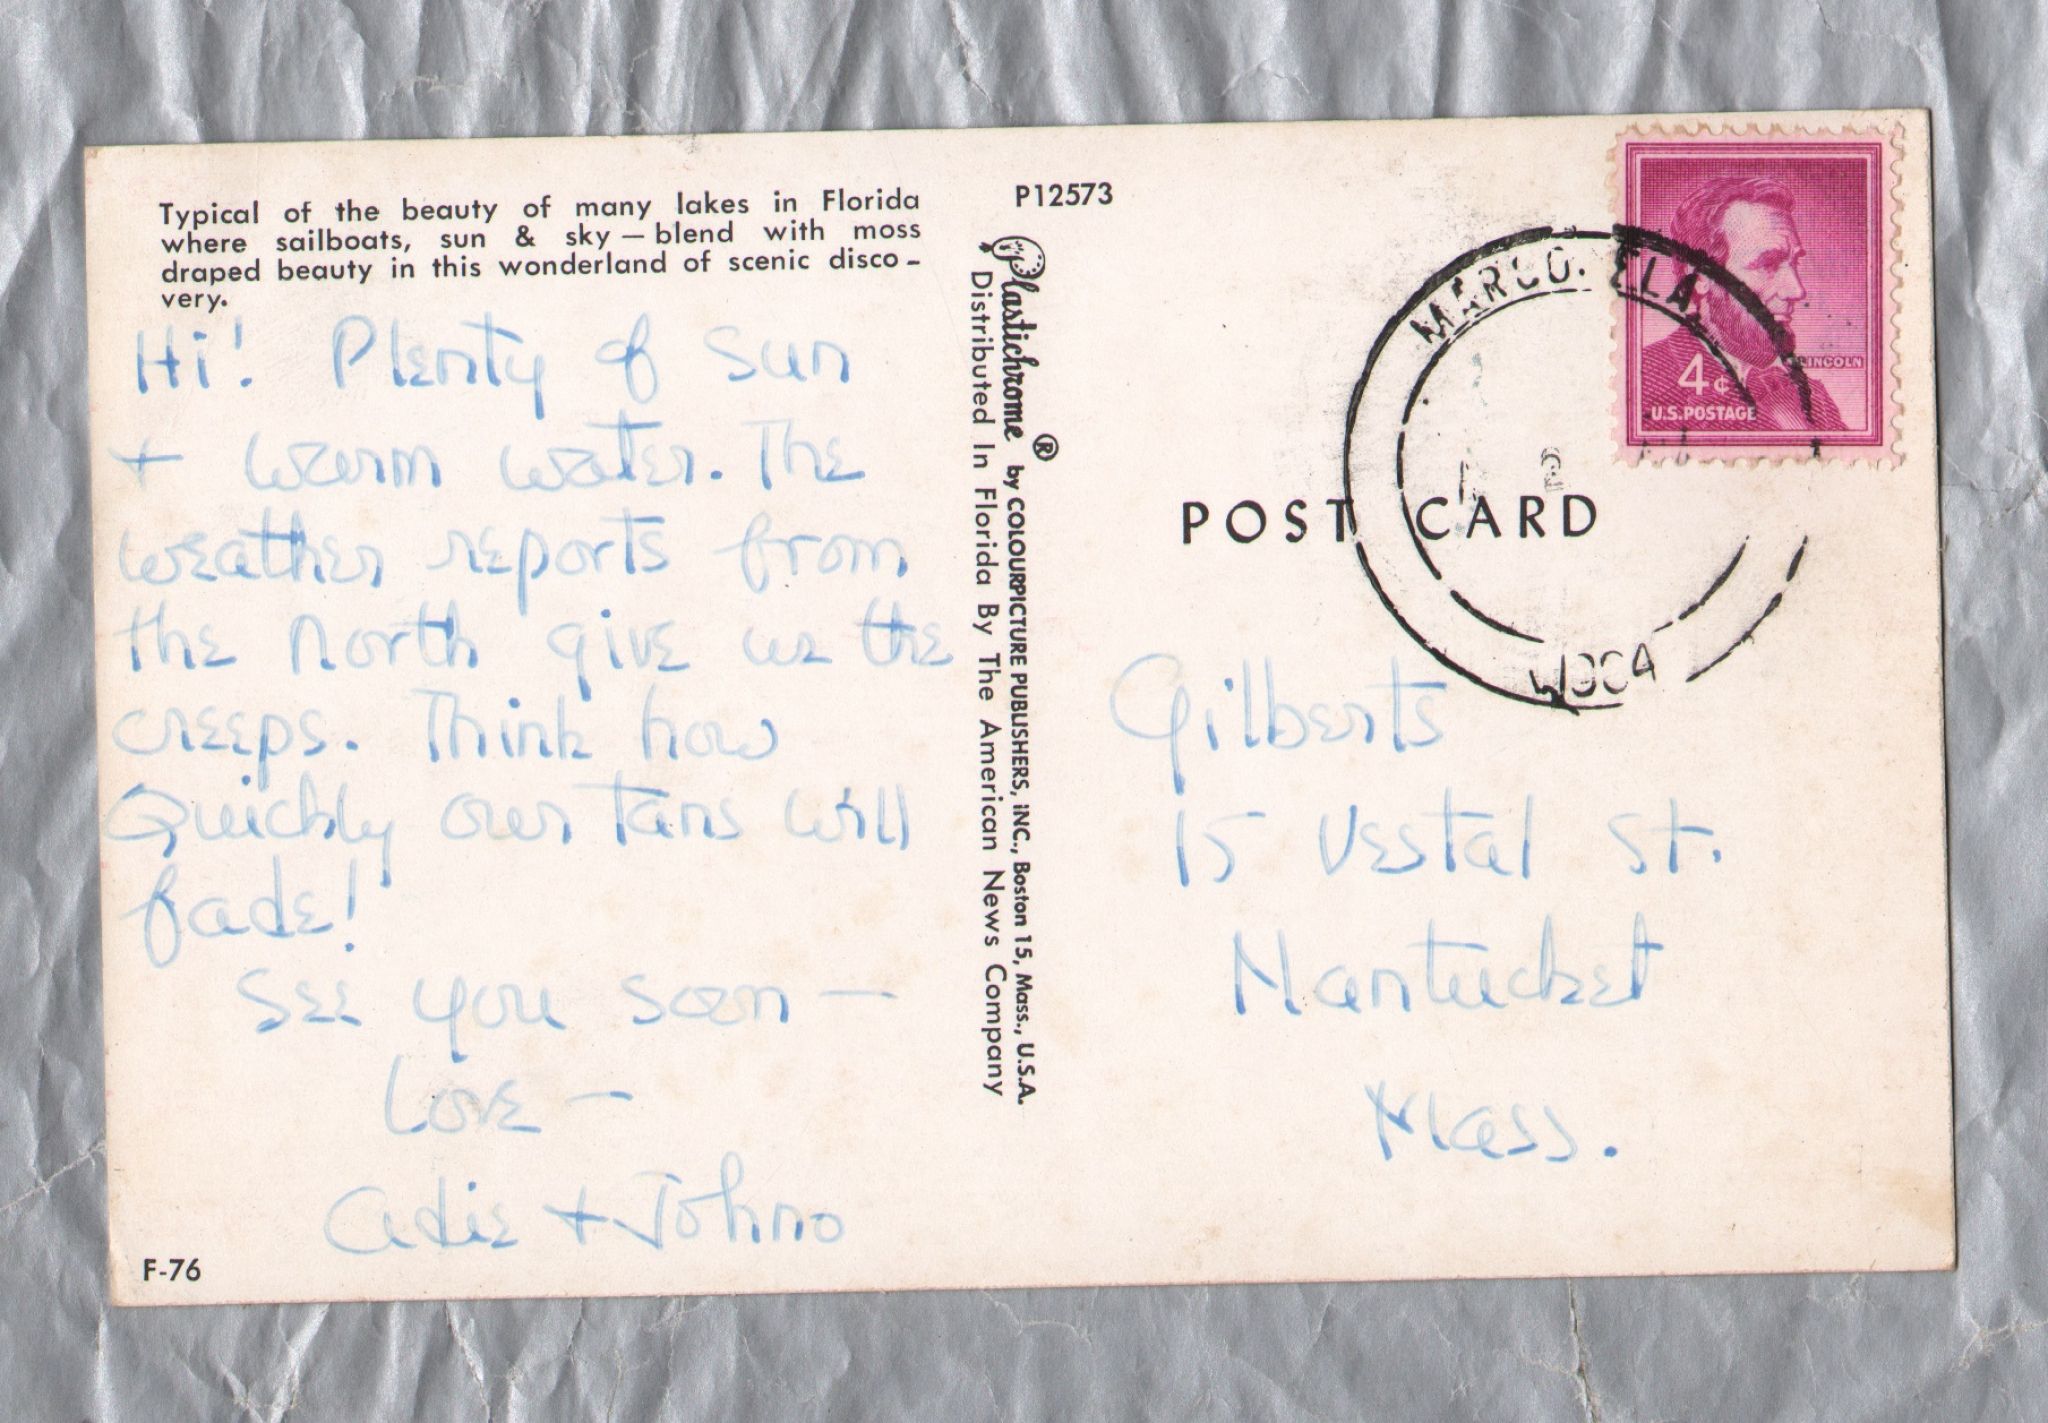 Typical of the beauty of many lakes in Florida
where sailboats, sun & sky — blend with moss
draped beauty in this wonderland of scenic disco-
very.
Hi! Plenty of sun
+ warm water. The
weather reports from
the north give us the
creeps. Think how
Quickly our tans will
fade!
See you soon —
Love —
Adie + Johno
F-76
P12573
Plastichrome ® by COLOURPICTURE PUBLISHERS, INC., Boston 15, Mass., U.S.A.
Distributed In Florida By The American News Company
MARCO. FLA.
LINCOLN
4¢
U.S. POSTAGE
POST CARD
Gilberts
15 Vestal St.
Nantucket
Mass.